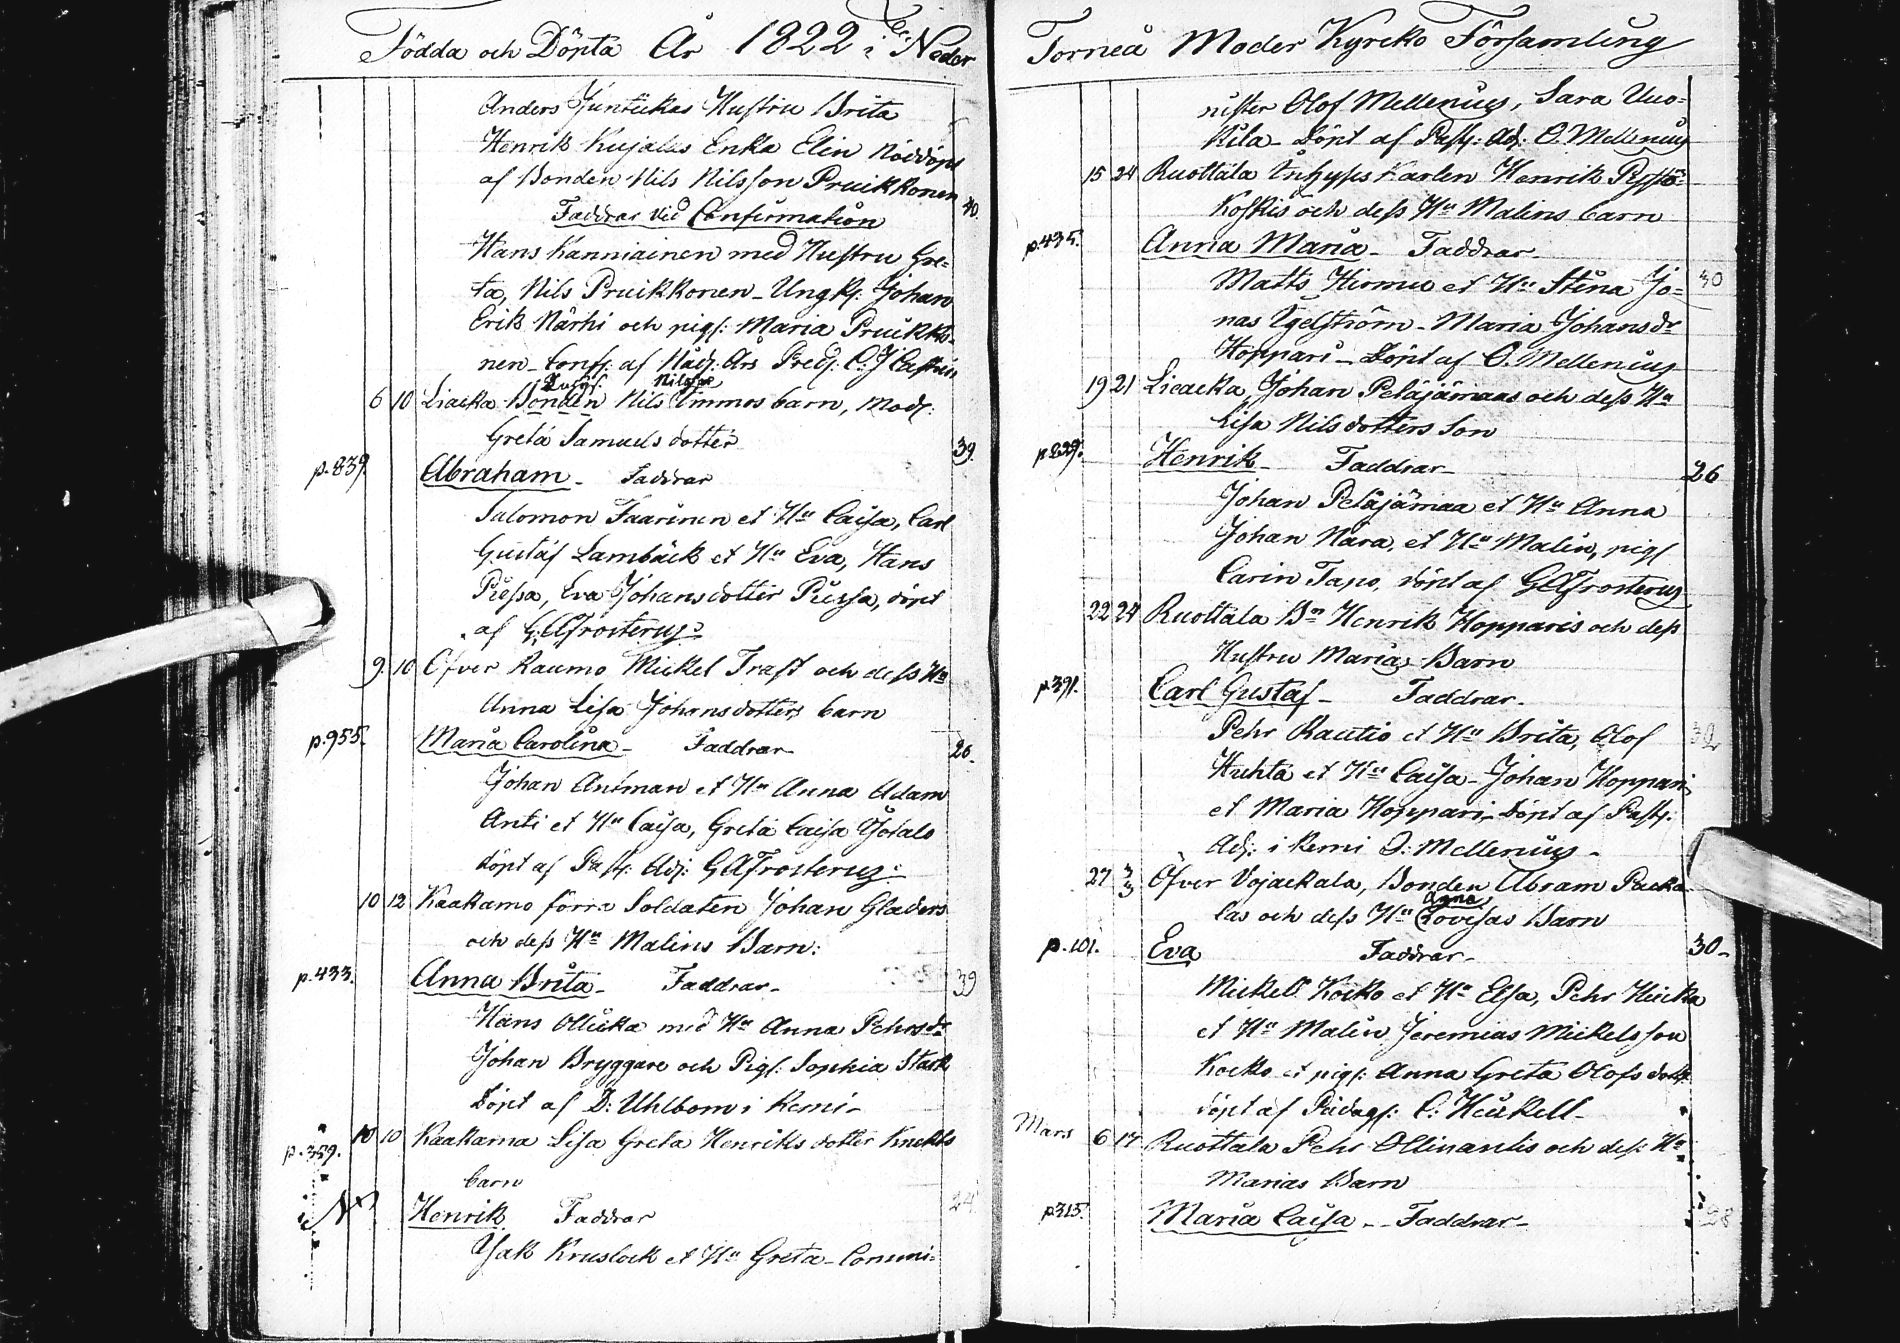 Födda och Döpta År 1822 i Neder
Anders Juntikas Hustru Brita
Henrik Kujalas Enka Elin nöddöpt
af Bonden Nils Nilsson Pruikkonen
40.
Faddrar vid Confirmation
Hans Kanniainen med Hustru Gre-
ta, Nils Pruikkonen - Ungk: Johan
Erik Närhi och pig: Maria Pruikko-
nen - Conf: af Nåd: Års Pred: C: J Castrén
Nilsson
6 10 Liacka Bonden Nils Immos barn, Mod:
Greta Samuels dotter
39.
p. 839. Abraham - Faddrar
Salomon Faarinen et Hu Caisa, Carl
Gustaf Lambäck et Hu Eva, Hans
Piessa, Eva Johansdotter Piessa, döpt
af G.A Frosterus:
9. 10 Öfver Raumo Mickel Trast och dess Hu
Anna Lisa Johansdotters barn
p. 955. Maria Carolina - Faddrar - 26.
Johan Antman et Hu Anna Adam
Anti et Hu Caisa, Greta Caisa
döpt af Past: Adj: G A Frosterus:
10 12 Kaakamo förra Soldaten Johan Gladers
och dess Hu Malins Barn:
p. 433. Anna Brita - Faddrar - 39
Hans Ollicka med Hu Anna Pehrsdr
Johan Bryggare och Pig: Sophia Stark
Döpt af D: Uhlbom i Kemi -
p. 359. 10 10 Kaakama Lisa Greta Henriks dotter Knekts
barn
Henrik Faddrar 24
Isak Kruslock et Hu Greta - Commi-
Torneå Moder Kyrcko Församling
nister Olof Mellenius, Sara Uuo-
kila - Döpt af Past: Adj: O. Mellenius
15 24 Ruottala Inhyses Karlen Henrik
koskis och dess Hu Malins barn
p. 435. Anna Maria - Faddrar -
Matts Hirmu et Hu Stina Jo- 30
nas Egelström - Maria Johansdr
Hoppari - Döpt af O. Mellenius
19 21 Lieacka, Johan Peläjämaas och dess Hu
Lisa Nilsdotters Son
p. 229. Henrik - Faddrar - 26
Johan Peläjämaa et Hu Anna
Johan Nara, et Hu Malin, pig:
Carin Tapo, döpt af G A Frosterus
22 24 Ruottala Bn Henrik Hopparis och dess
Hustru Marias Barn
p. 391. Carl Gustaf - Faddrar -
Pehr Rautio et Hu Brita, Olof 32
Huhta et Hu Caisa - Johan Hoppari,
et Maria Hoppari, Döpt af Past:
Adj: i Kemi O: Mellenius -
27 3/3 Öfver Vojackala, Bonden Abram Packa-
Anna
las och dess Hu Lovisas Barn
p. 101. Eva Faddrar - 30 -
Mickel Kocko et Hu Elsa, Pehr Hiicka
et Hu Malin Jeremias Mickelsson
Kocko et pig: Anna Greta Olofs dott:
döpt af Pædag: C: Heickell -
Mars 6 17 Ruottala Pehr Ollinantis och dess Hu
Marias Barn
p. 315. Maria Caisa - Faddrar - 28